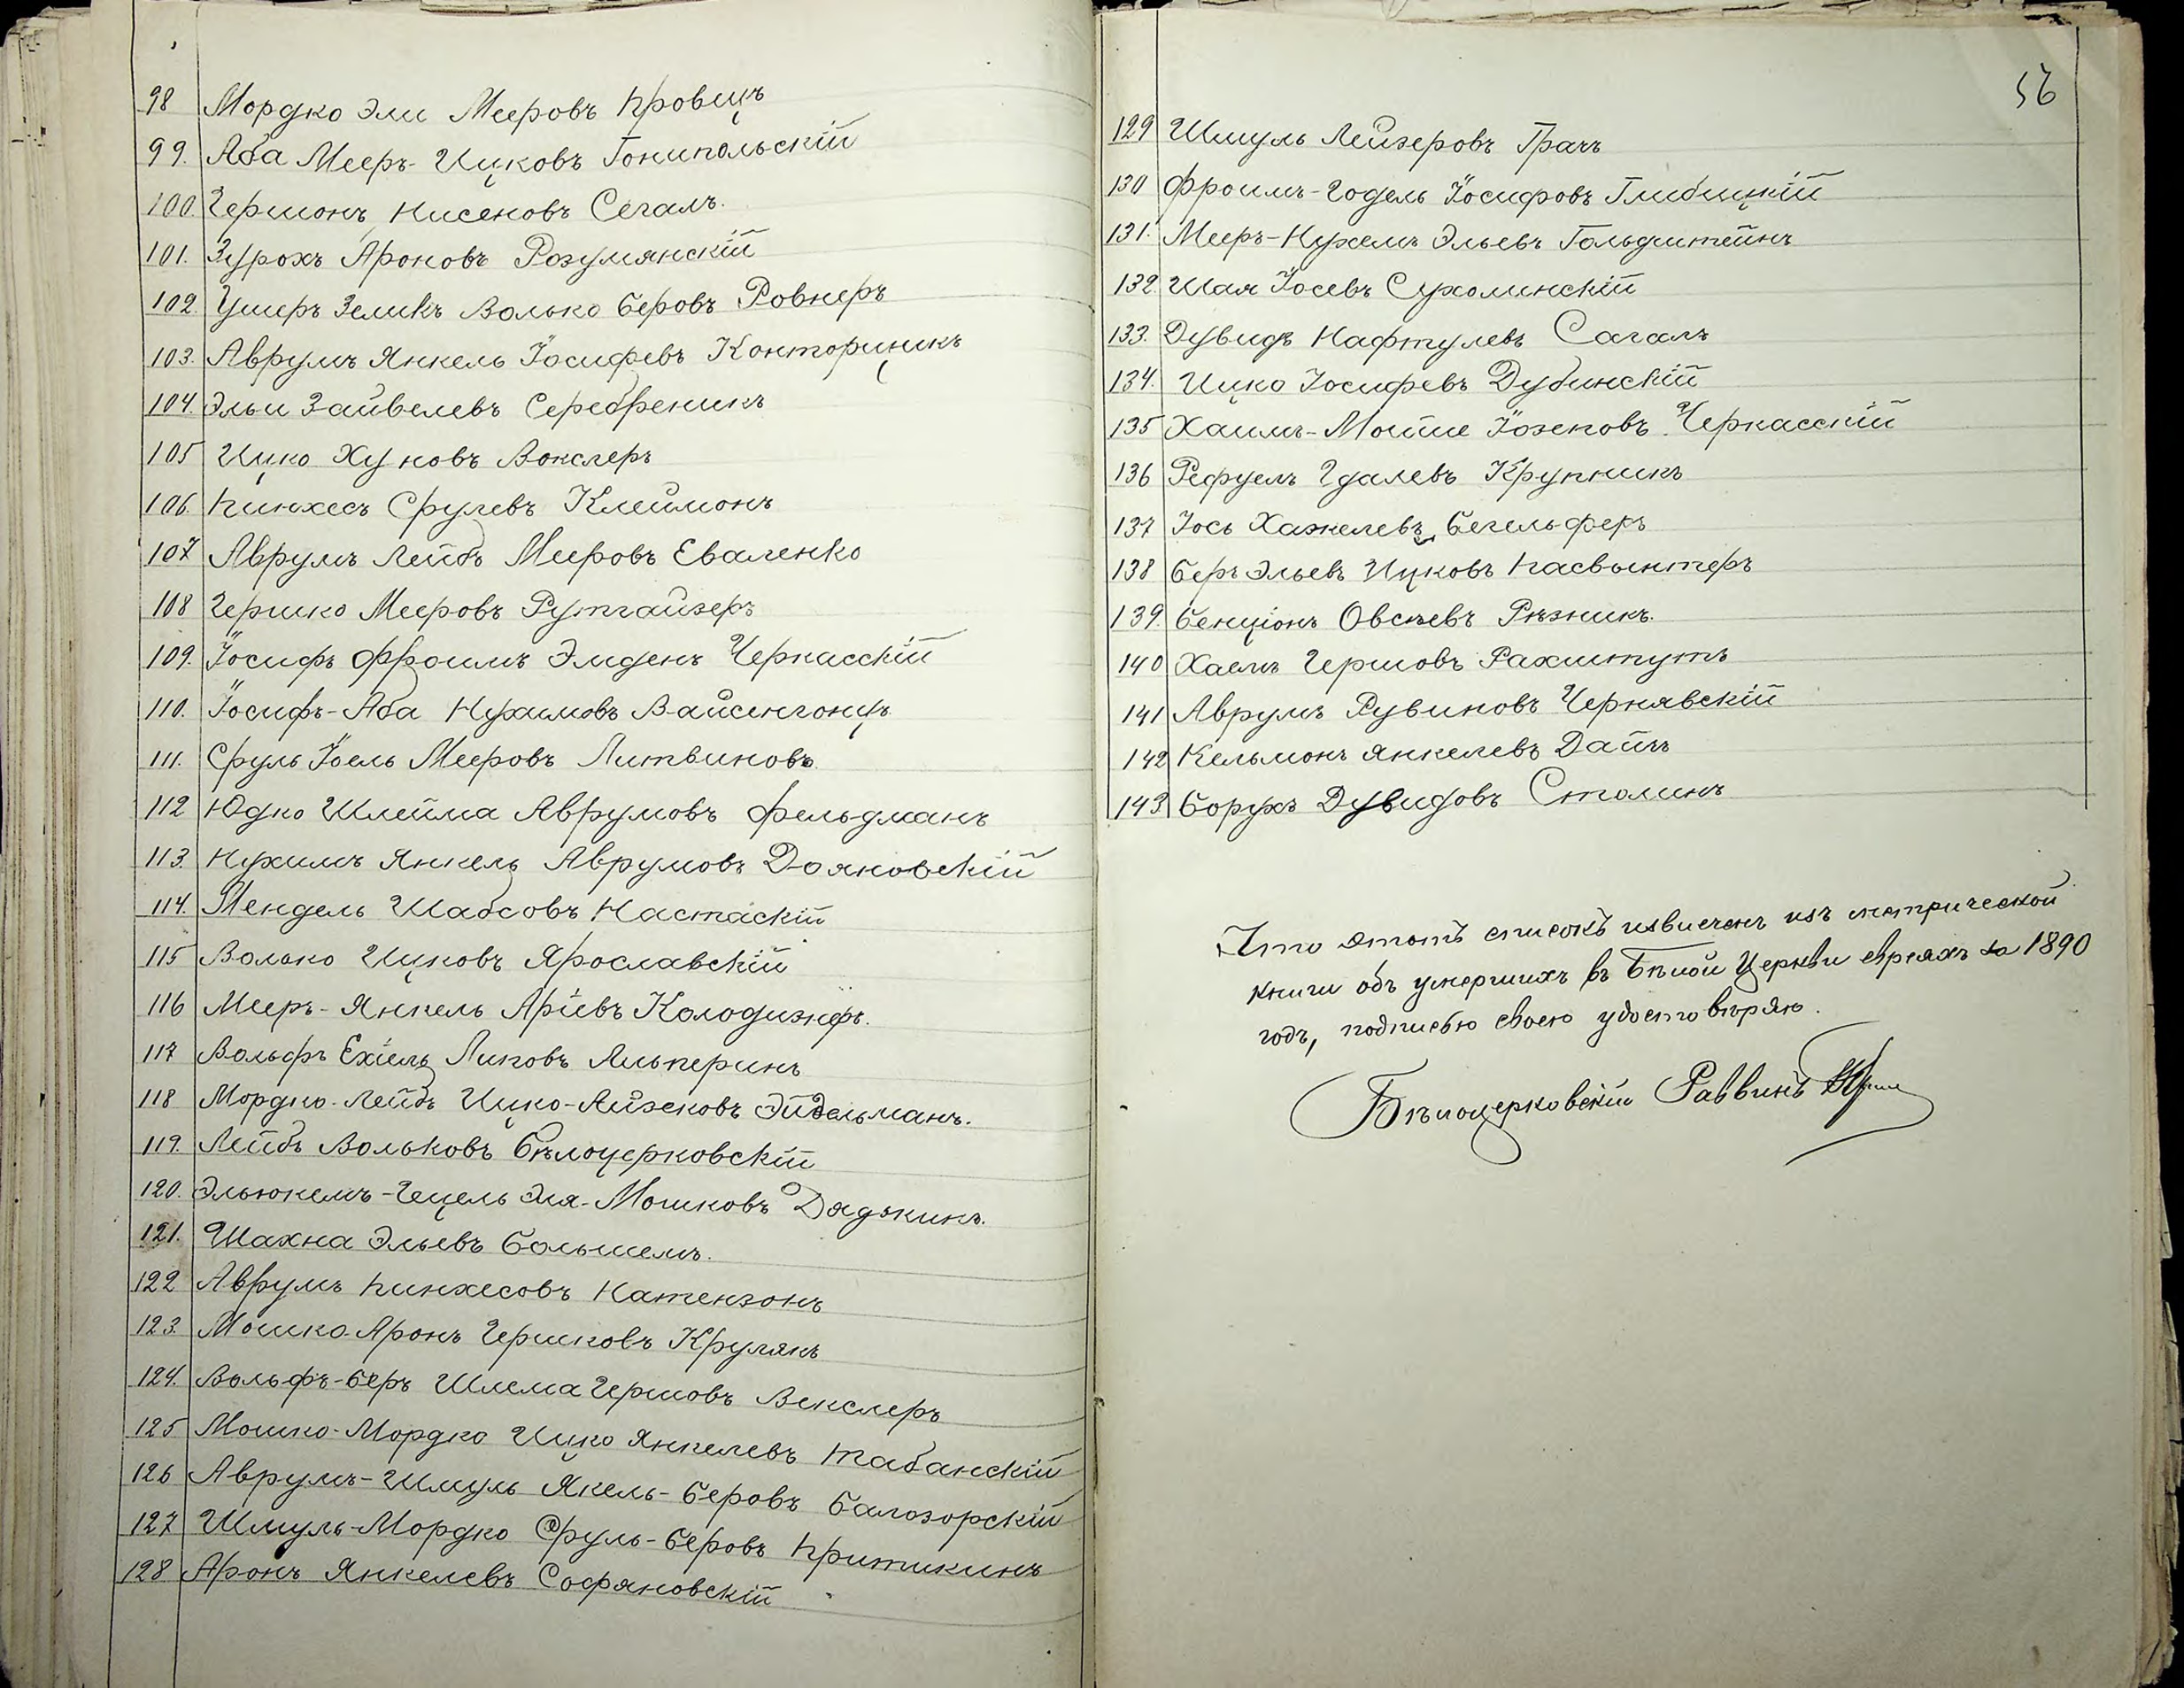 98 Мордко Эли Мееровъ Кровицъ
99. Аба Мееръ-Ицковъ Гонипольскій
100. Гершонъ Нисеновъ Сегалъ.
101. Зурохъ Ароновъ Розумянскій
102. Ушеръ Зеликъ Волько Беровъ Ровнеръ
103. Аврумъ Янкель Іосифевъ Конторщикъ
104. Эльи Зайвелевъ Серебреникъ
105 Ицко Хуновъ Вокслеръ
106. Пинхесъ Срулевъ Клеймонъ
107 Аврумъ Лейбъ Мееровъ Еваленко
108 Гершко Мееровъ Рутгайзеръ
109. Іосифъ Фроимъ Элиденъ Черкасскій
110. Іосифъ-Аба Нухимовъ Вайсенгонцъ
111. Сруль Іоель Мееровъ Литвиновъ.
112 Юдко Шлейма Аврумовъ Фельдманъ
113. Нухимъ Янкель Аврумовъ Дояновскій
114. Мендель Шабсовъ Настаскій
115 Волько Ицковъ Ярославскій
116 Мееръ-Янкель Аріевъ Колодизнеръ.
117 Вольфъ Ехіель Липовъ Альперинъ
118 Мордко-Лейбъ Ицко-Айзековъ Эйдельманъ.
119. Лейбъ Вольковъ Бѣлоцерковскій
120. Элюкемъ-Гецель Эля-Мошковъ Дядькинъ.
121. Шахна Эльевъ Большемъ.
122 Аврумъ Пинхесовъ Катензонъ
123. Мошко-Аронъ Гершковъ Крулякъ
124. Вольфъ-Беръ Шлема Гершовъ Векслеръ
125 Мошко-Мордко Ицко Янкелевъ Табанскій
126 Аврумъ-Шмуль Якель-Беровъ Балозорскій
127 Шмуль-Мордко Сруль-Беровъ Притикинъ
128 Аронъ Янкелевъ Софяновскій
56
129 Шмуль Лейзеровъ Грачъ
130 Фроимъ-Годель Іосифовъ Глибицкій
131. Мееръ-Нухемъ Эльевъ Гольдштейнъ
132. Шая Іосевъ Сухолинскій
133. Дувидъ Нафтулевъ Сагалъ
134. Ицко Іосифевъ Дубинскій
135 Хаимъ-Мойше Іозеповъ Черкасскій
136 Рефуелъ Гдалевъ Крупникъ
137 Іось Хазкелевъ Бегельферъ
138 Беръ Эльевъ Ицковъ Пасвынтеръ
139. Бенціонъ Овсѣевъ Рѣзникъ.
140 Хаемъ Гершовъ Рахштутъ
141 Аврумъ Рувиновъ Чернявскій
142 Кельмонъ Янкелевъ Дайчъ
143 Борухъ Дувидовъ Столинъ
Что этотъ списокъ извлеченъ изъ метрической
книги объ умершихъ въ Бѣлой Церкви евреяхъ за 1890
годъ, подписью своею удостовѣряю.
Бѣлоцерковскій Раввинъ